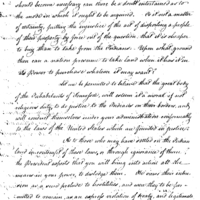 should become necessary can there be a doubt entertained as to
the mode in which it ought to be acquired. Is it not a matter
of notoriety, putting the injustice of the act of dispossessing a people
of their property by force out of the question, that it is cheaper
to buy than to take from the Indians. Upon what ground
then can a nation presume to take land when it has it in
its power to purchase whatever it may want?
Let me be permitted to believe that the great body
of the Inhabitants of will esteem it a moral and
religious duty to do justice to the Indians on their borders, and
will conduct themselves under your administration conformably
to the laws of the United States which are founded in justice.
As to those who may have settled on the Indian
land in of those laws, or through ignorance of them
the president expects that you will bring into action all the
means in your power, to dislodge them. He views their intru-
sion as a most prelude to hostilities, and were they to be per-
mitted to remain, as an express violation of treaty, and legitimate